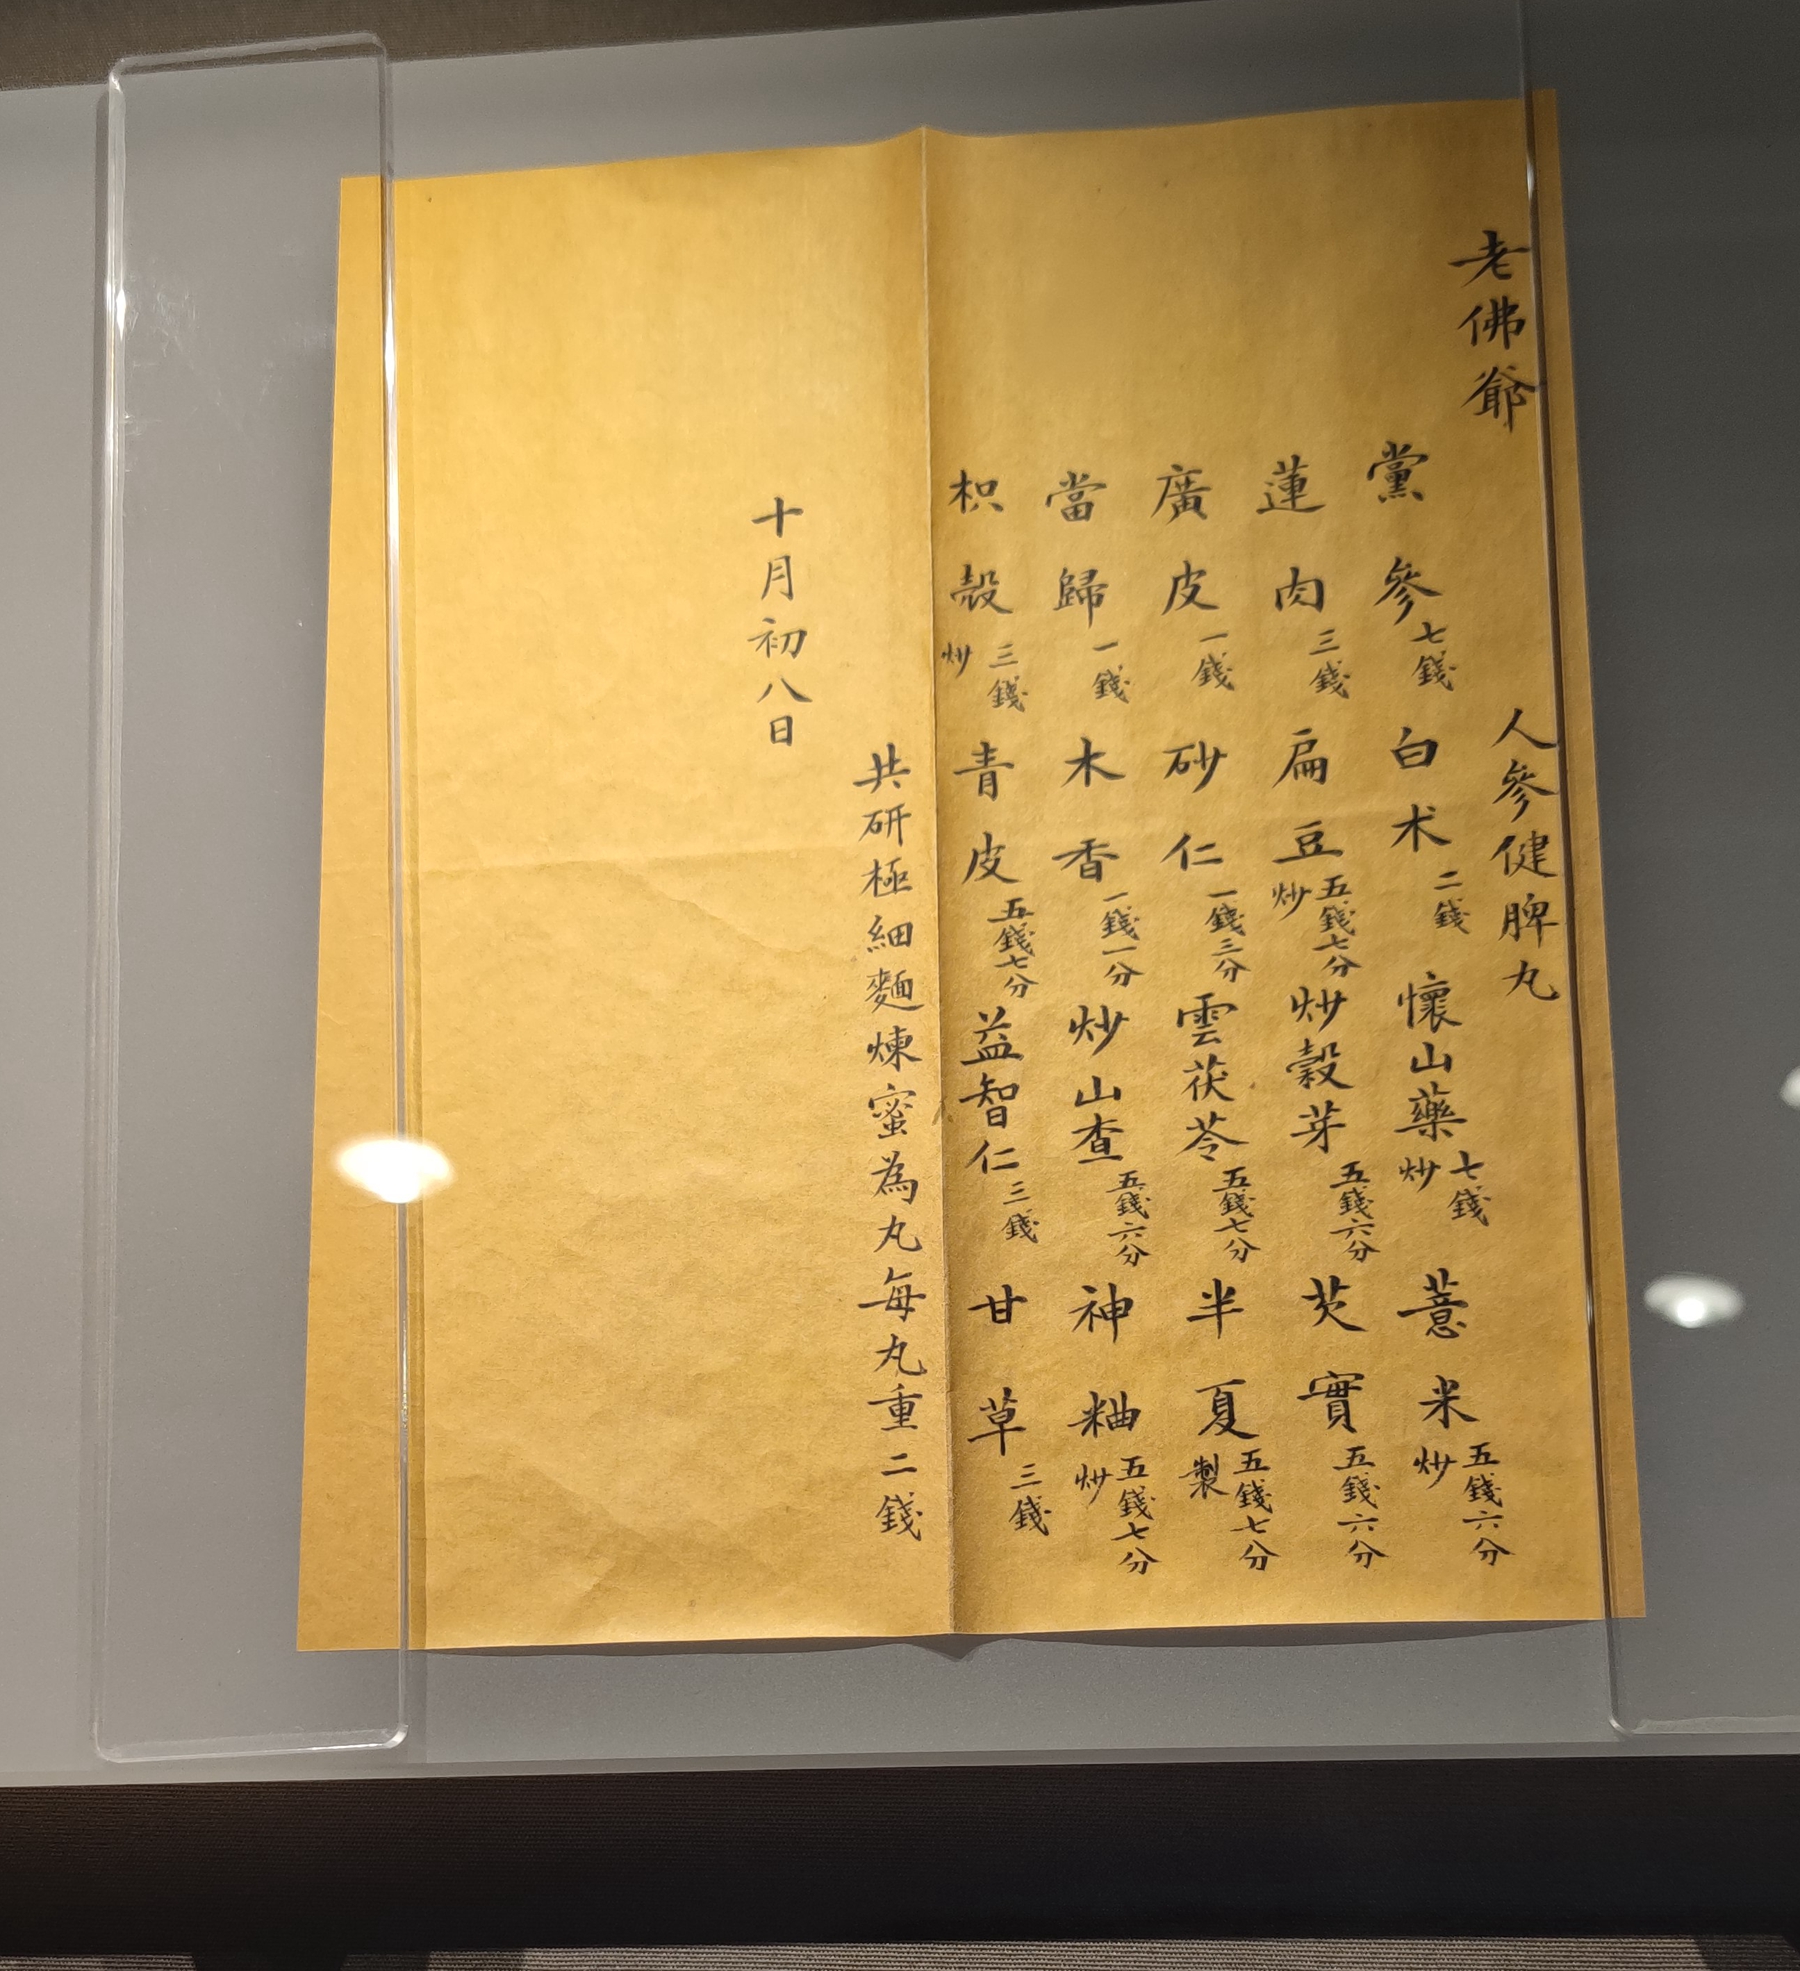 老佛爺
人參健脾丸
黨參七錢 白术二錢 懷山藥七錢炒 薏米五錢六分炒
蓮肉三錢 扁豆五錢七分炒 炒穀芽五錢六分 芡實五錢六分
廣皮一錢 砂仁一錢三分 雲茯苓五錢七分 半夏五錢七分製
當歸一錢 木香一錢一分 炒山查五錢六分 神粬五錢七分炒
枳殼三錢炒 青皮五錢七分 益智仁三錢 甘草三錢
共研極細麵煉蜜為丸每丸重二錢
十月初八日